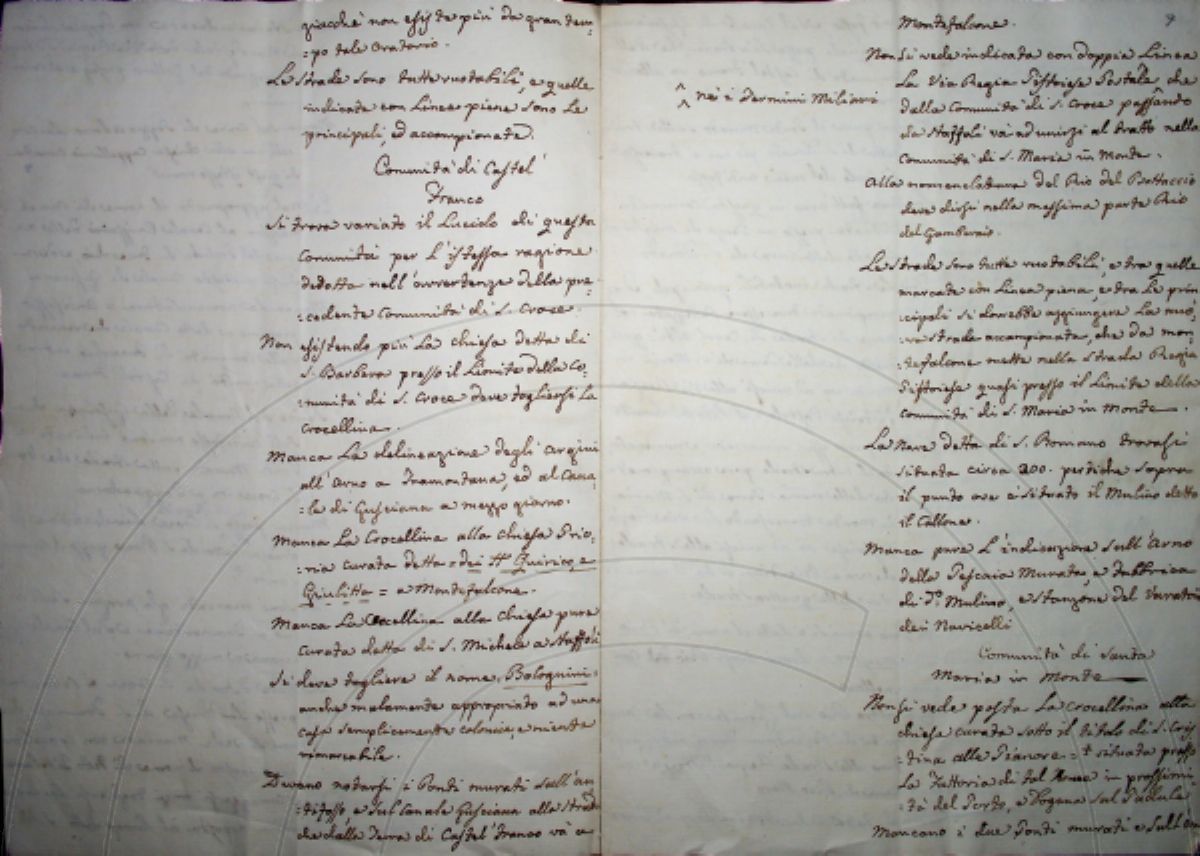 giacchè non esiste più da gran tem=
=po tale Oratorio.
Le Strade sono tutte ruotabili, e quelle
indicate con Linee piene sono Le
principali, ed accampionate.
Comunità di Castel
Franco
Si trova variato il Lucido di questa
Comunità per l'istessa ragione
dedotta nell'avvertenza della pre=
=cedente Comunità di S. Croce.
Non esistendo più La Chiesa detta di
S. Barbera presso il Limite della Co=
=munità di S. Croce deve togliersi La
Crocellina.
Manca La delineazione degli argini
all'Arno a Tramontana, ed al Cana=
=le di Gusciana a mezzo giorno.
Manca La Crocellina alla Chiesa Prio=
=ria curata detta = dei SS. Quirico, e
Giulitta = a Montefalcone.
Manca La Crocellina alla Chiesa pure
Curata detta di S. Michele a Staffoli
Si deve togliere il nome Bolognini
anche malamente appropriato ad una
casa semplicemente colonica, e niente
rimarcabile.
Devono notarsi i Ponti murati sull'An=
=tifosso e sul Canale Gusciana alla Strada
che dalla Terra di Castel Franco và a
9
Montefalcone.
Non si vede indicata con doppia Linea
La Via Regia Pistoiese Postale che
^ nè i Termini Miliari
dalla Comunità di S. Croce passando
da Staffoli và ad unirsi al tratto nella
Comunità di S. Maria in Monte.
Alla nomenclatura del Rio del Bottaccio
deve dirsi nella massima parte Rio
del Gamberaio.
Le Strade sono tutte ruotabili, e tra quelle
marcate con Linea piena, e tra Le prin=
=cipali si dovrebbe aggiungere La nuo=
=va Strada accampionata, che da Mon=
=tefalcone mette nella Strada Regia
Pistoiese quasi presso il Limite della
Comunità di S. Maria in Monte.
La Nave detta di S. Romano trovasi
situata circa 200. pertiche sopra
il punto ove è situato il Mulino detto
il Callone.
Manca pure L'indicazione sull'Arno
della Pescaia Murata, e fabbrica
di do. Mulino, e stanzone del Varatoio
dei Navicelli
Comunità di Santa
Maria in Monte
Non si vede posta La Crocellina alla
Chiesa curata sotto il titolo di S. Cris=
=tina alle Pianore = situata presso
La Fattoria di tal Nome in prossimi=
=tà del Porto, e Dogana sul Padule
Mancano i due Ponti murati e sull'An=